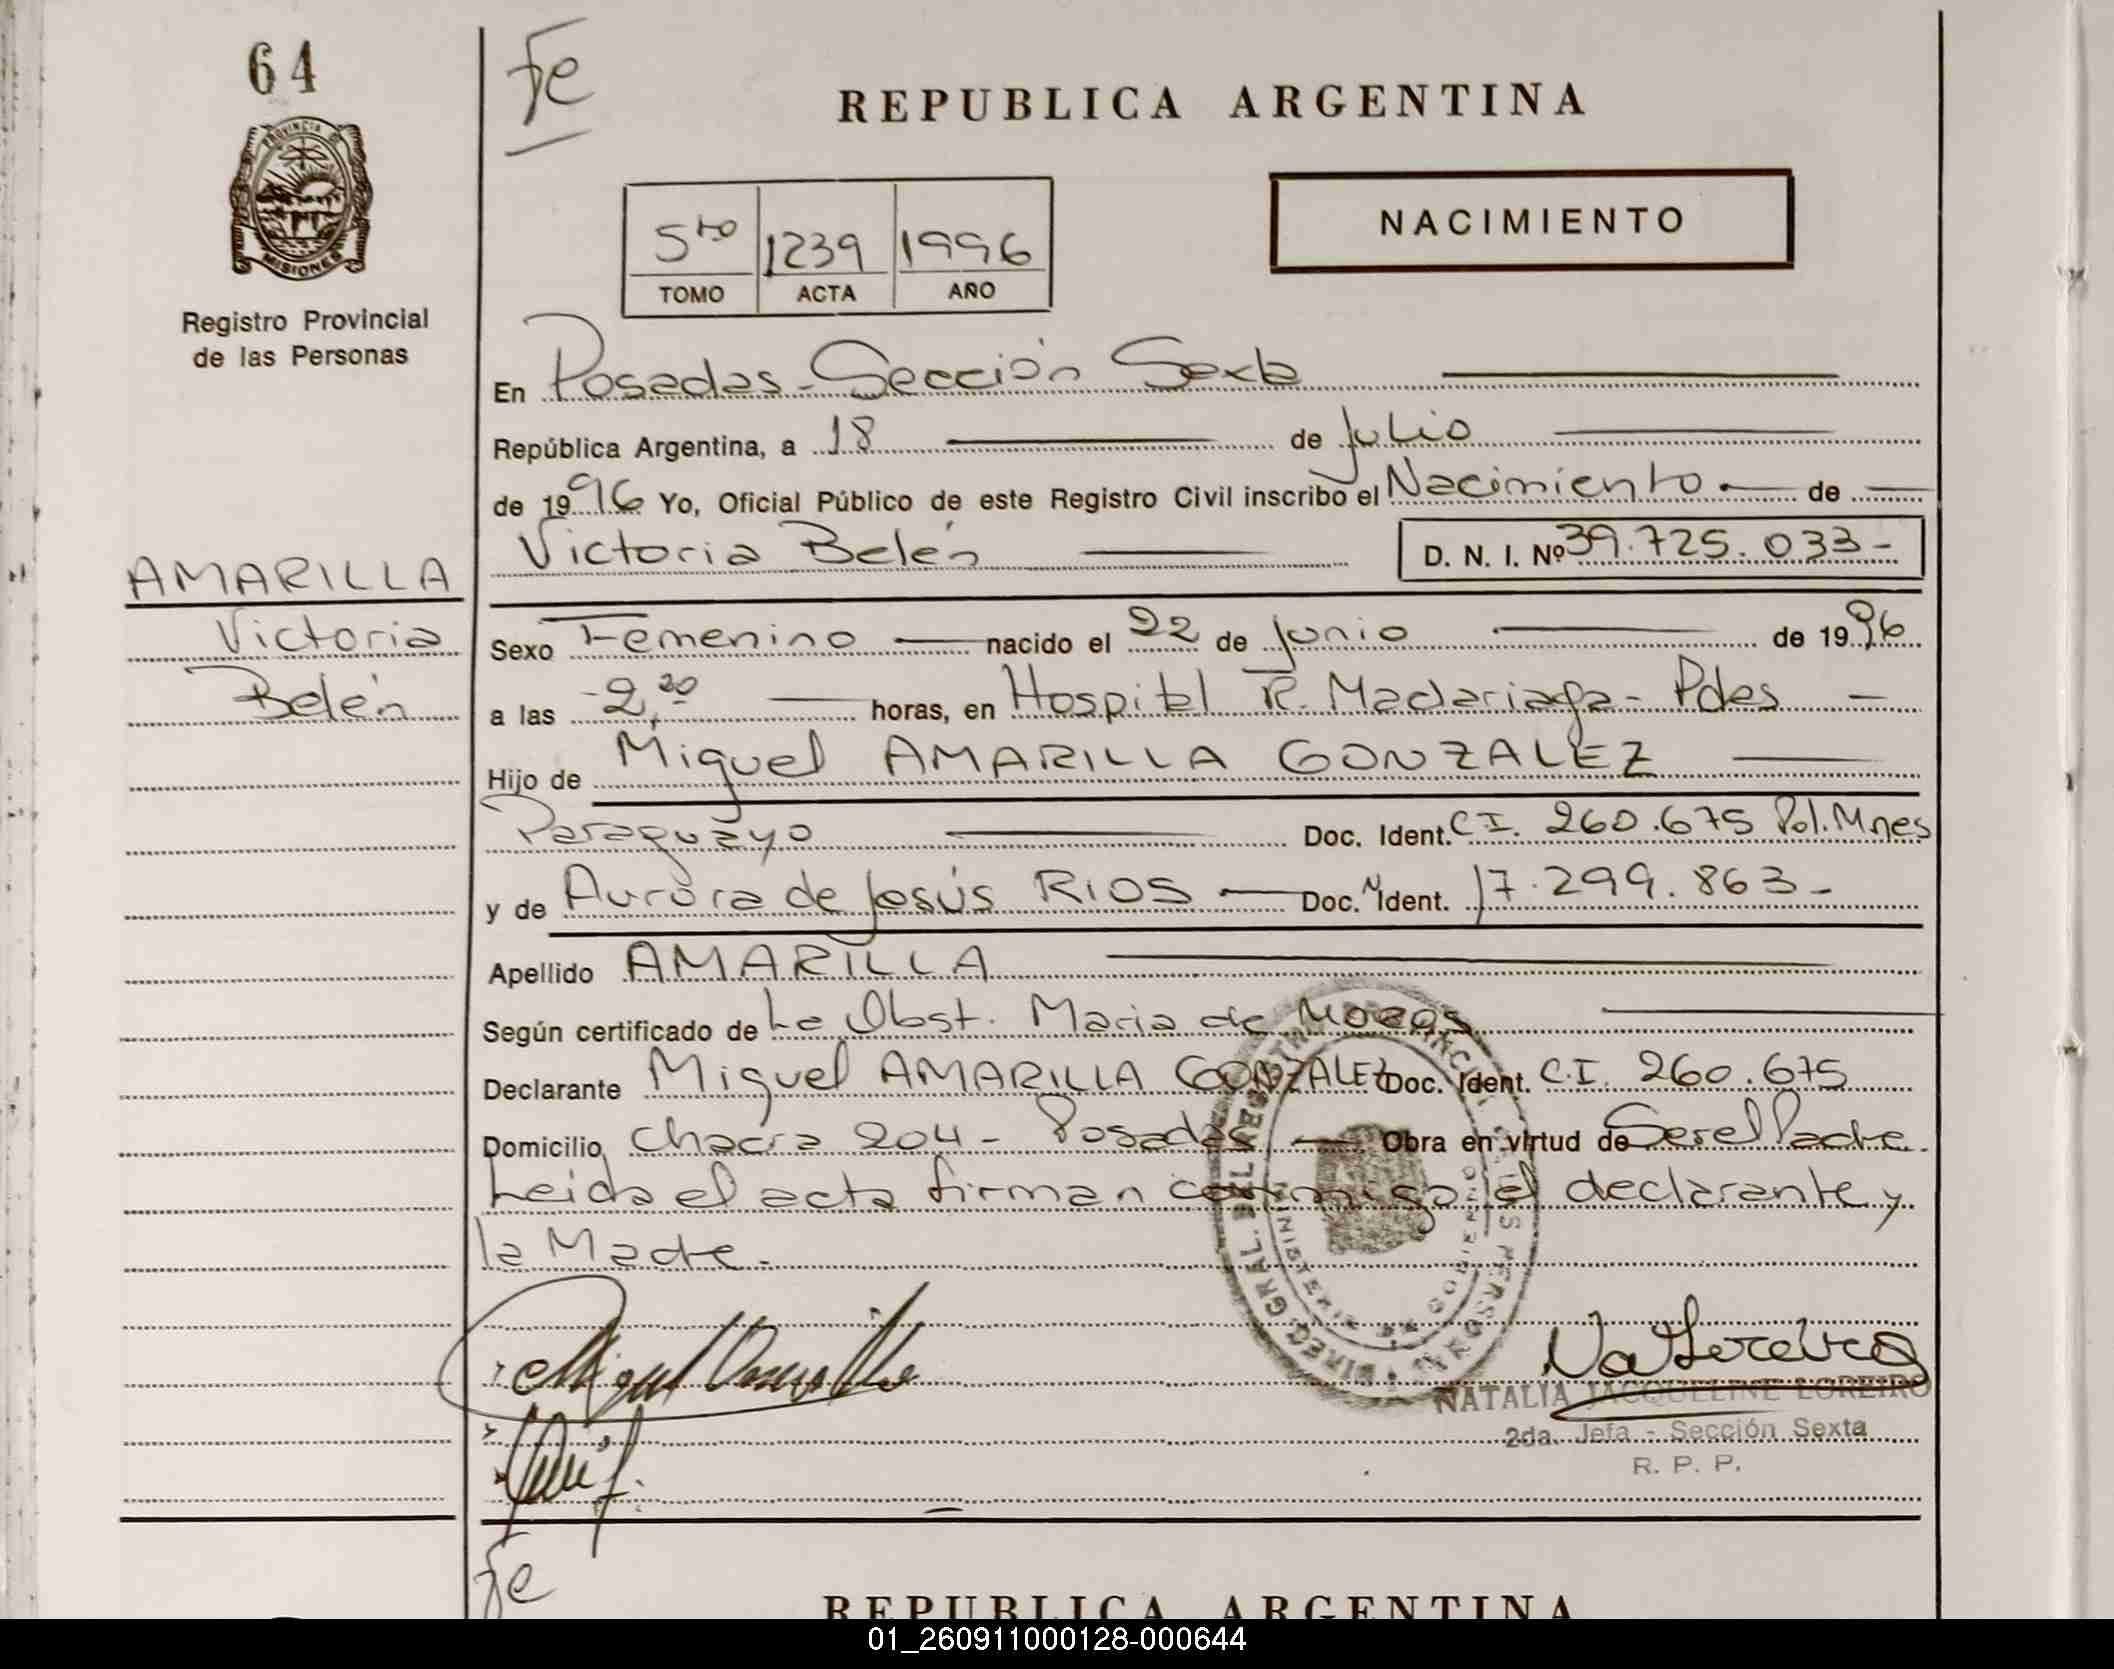 64
Fe
REPUBLICA ARGENTINA
PROVINCIA DE
MISIONES
Registro Provincial
de las Personas
5to 1239 1996
TOMO ACTA AÑO
NACIMIENTO
En Posadas - Sección Sexta
República Argentina, a 18 de Julio
de 1996 Yo, Oficial Público de este Registro Civil inscribo el Nacimiento de
Victoria Belén D. N. I. Nº 39.725.033-
AMARILLA
Victoria
Belén
Sexo Femenino nacido el 22 de Junio de 1996
a las -2,20 horas, en Hospital R. Madariaga - Pdas
Hijo de Miguel AMARILLA GONZALEZ
Paraguayo Doc. Ident. C.I. 260.675 Pol. Mnes
y de Aurora de Jesús RIOS Doc. N Ident. 17.299.863-
Apellido AMARILLA
Según certificado de La Obst. Maria de
Declarante Miguel AMARILLA GONZALEZ Doc. Ident. C.I. 260.675
Domicilio Chacra 204 - Posadas Obra en virtud de Ser el Padre.
Leida el acta firman conmigo el declarante y
la Madre.
DIREC. GRAL. DEL REGISTRO PROVINCIAL DE LAS PERSONAS
MINISTERIO DE GOBIERNO
NATALIA JACQUELINE LOREIRO
2da. Jefa - Sección Sexta
R. P. P.
Fe
REPUBLICA ARGENTINA
01_260911000128-000644